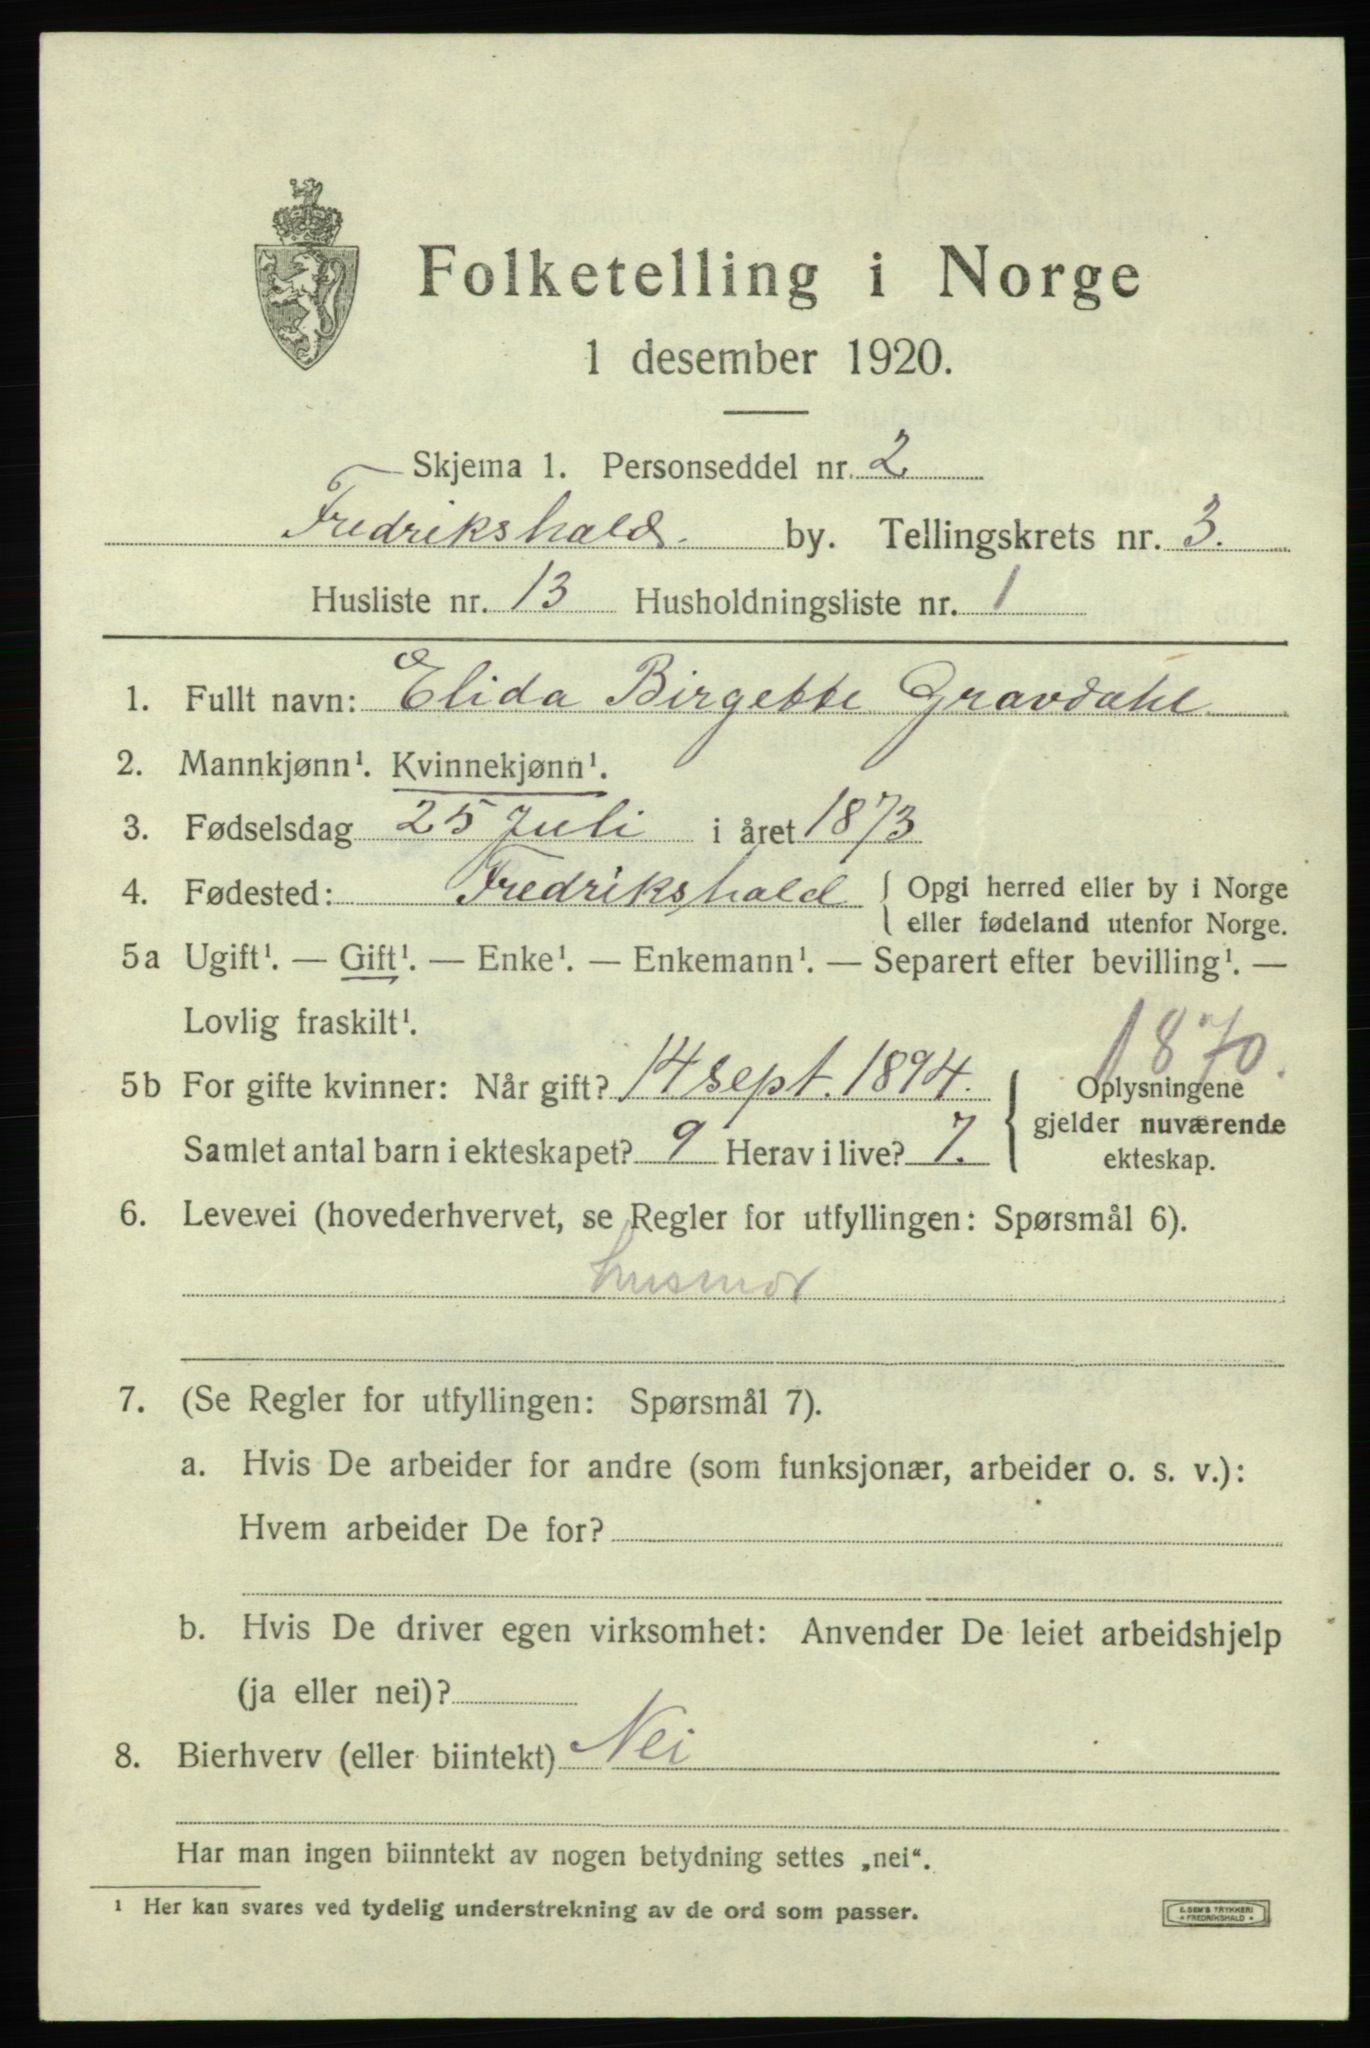 Folketelling i Norge
1 desember 1920.
Skjema 1. Personseddel nr. 2
Fredrikshald. by. Tellingskrets nr. 3.
Husliste nr. 13 Husholdningsliste nr. 1
1. Fullt navn: Elida Birgette Gravdahl
2. Mannkjønn¹. Kvinnekjønn¹.
3. Fødselsdag 25 Juli i året 1873
4. Fødested: Fredrikshald { Opgi herred eller by i Norge
eller fødeland utenfor Norge.
5a Ugift¹. — Gift¹. — Enke¹. — Enkemann¹. — Separert efter bevilling¹. —
Lovlig fraskilt¹.
1870.
5b For gifte kvinner: Når gift? 14 sept. 1894. { Oplysningene
gjelder nuværende
Samlet antal barn i ekteskapet? 9 Herav i live? 7. ekteskap.
6. Levevei (hovederhvervet, se Regler for utfyllingen: Spørsmål 6).
husmor
7. (Se Regler for utfyllingen: Spørsmål 7).
a. Hvis De arbeider for andre (som funksjonær, arbeider o. s. v.):
Hvem arbeider De for?
b. Hvis De driver egen virksomhet: Anvender De leiet arbeidshjelp
(ja eller nei)?
8. Bierhverv (eller biintekt) Nei
Har man ingen biinntekt av nogen betydning settes „nei“.
¹ Her kan svares ved tydelig understrekning av de ord som passer.
E. SEM'S TRYKKERI
• FREDRIKSHALD •